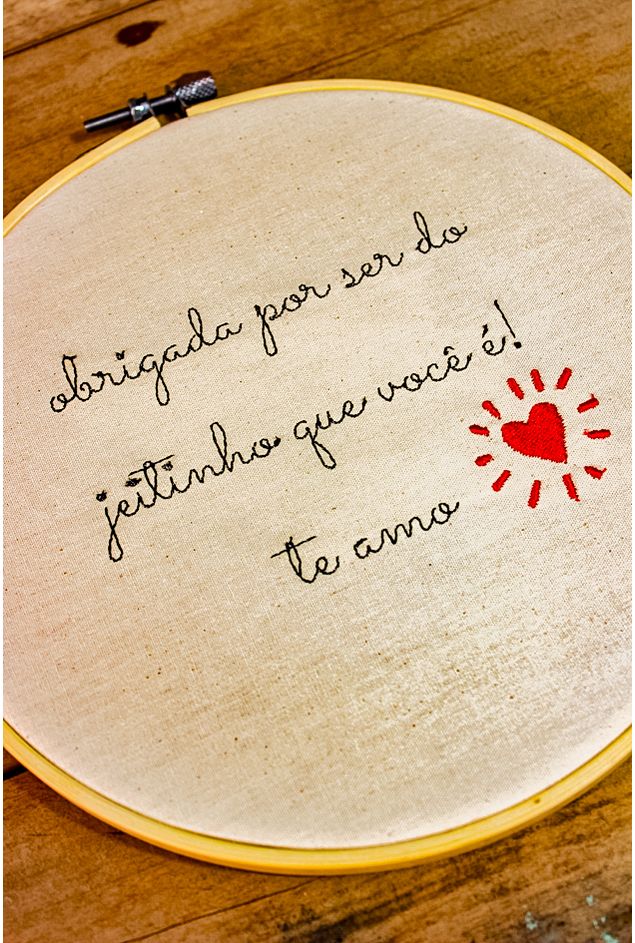 obrigada por ser do
jeitinho que você é!
te amo